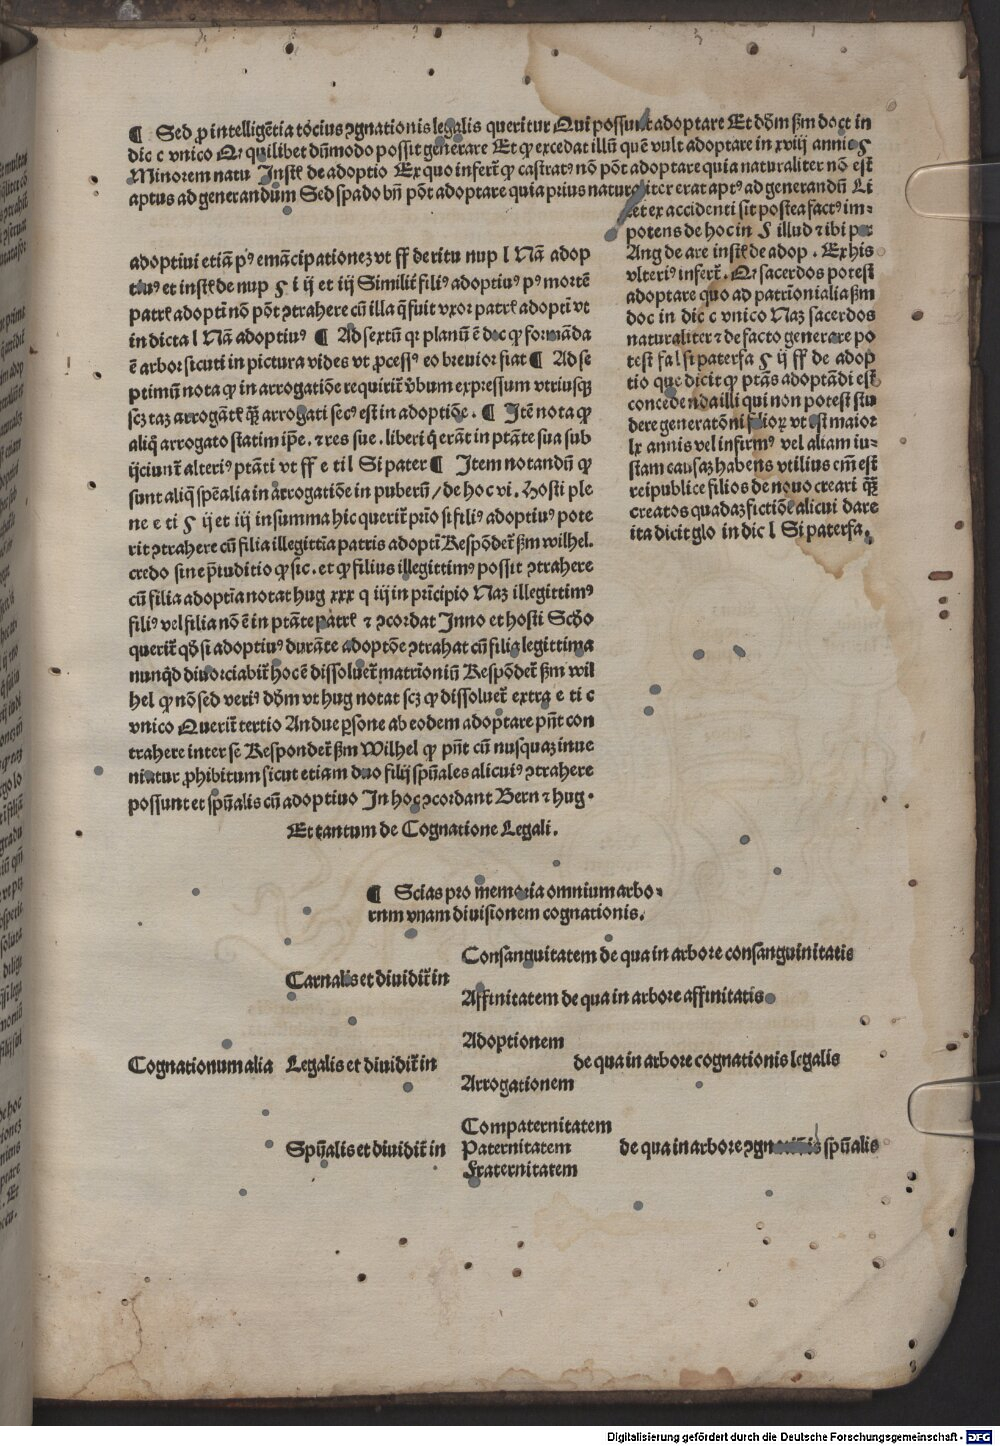 ¶ Sed ꝓ intelligẽtia tocius ꝯgnationis legalis queritur Qui possunt adoptare Et dõm ẜm doct in
dic c vnico Qꝛ quilibet dũmodo possit generare Et ꝙ excedat illũ quẽ vult adoptare in xviij annis
Minorem natu Instĩ de adoptio Ex quo infertꝛ ꝙ castratꝰ nõ põt adoptare quia naturaliter nõ est
aptus ad generandum Sed spado bñ põt adoptare quia prius naturaliter erat aptꝰ ad generandũ Li
cet ex accidenti sit postea factꝰ im⸗
potens de hoc in § illud ⁊ ibi per
Ang de are instĩ de adop . Ex his
vlteriꝰ infertꝛ. Qꝛ sacerdos potest
adoptare quo ad patrĩonialia ẜm
doc in dic c vnico Naz sacerdos
naturaliter ⁊ de facto generare po
test fal si paterfa § ij ff de adop
tio que dicit ꝙ ptãs adoptãdi est
concedenda illi qui non potest stu
dere generatõni filioꝝ vt est maior
lx annis vel infirmꝰ vel aliam iu⸗
stam causaz habens vtilius em̃ est
reipublice filios de nouo creari q̃ꝫ
creatos quadaz fictiõe alicui dare
ita dicit glo in dic l Si paterfa.
adoptiui etiã pꝰ emãcipationez vt ff de ritu nup l Nã adop
tiuꝰ et instĩ de nup § i ij et iij Similiť filiꝰ adoptiuꝰ pꝰ mortẽ
patrꝭ adopti nõ põt ꝯtrahere cũ illa q̃ fuit vxor patrꝭ adopti vt
in dicta l Nã adoptiuꝰ ¶ Ad sextũ qꝛ planũ ẽ doc ꝙ formãda
ẽ arbor sicuti in pictura vides vt ꝓcessꝰ eo breuior fiat ¶ Ad se
ptimũ nota ꝙ in arrogatiõe requiritꝛ ṽbum expressum vtriusqꝫ
scꝫ taz arrogãtꝭ q̃ꝫ arrogati secꝰ est in adoptiõe. ¶ Itẽ nota ꝙ
aliq̃ arrogato statim ip̃e. ⁊ res sue. liberi q̃ erãt in ptãte sua sub
ijciuntꝛ alteriꝰ ptãti vt ff e ti l Si pater ¶ Item notandũ ꝙ
sunt aliq̃ spẽalia in arrogatiõe in puberũ / de hoc vi. Hosti ple
ne e ti § ij et iij in summa hic queritꝛ prio si filiꝰ adoptiuꝰ pote
rit ꝯtrahere cũ filia illegittĩa patris adopti Respõdetꝛ ẜm wilhel.
credo sine p̃iuditio ꝙ sic. et ꝙ filius illegittimꝰ possit ꝯtrahere
cũ filia adoptĩa notat hug xxx q iij in prĩcipio Naz illegittimꝰ
filiꝰ vel filia nõ ẽ in ptãte patrꝭ ⁊ ꝯcordat Inno et hosti Scďo
queritꝛ qď si adoptiuꝰ durãte adoptõe ꝯtrahat cũ filia legittima
nunq̃d diuorciabitꝛ hoc ẽ dissoluetꝛ matrĩoniũ Respõdetꝛ ẜm wil
hel ꝙ nõ sed veriꝰ dõm vt hug notat scꝫ ꝙ dissoluetꝛ extra e ti c
vnico Queritꝛ tertio An due ꝑsone ab eodem adoptare pñt con
trahere inter se Respondetꝛ ẜm Wilhel ꝙ pñt cũ nusquaz inue
niatur ꝓhibitum sicut etiam duo filij spũales alicuiꝰ ꝯtrahere
possunt et spũalis cũ adoptiuo In hoc ꝯcordant Bern ⁊ hug.
Et tantum de Cognatione Legali.
¶ Scias pro memoria omnium arbo⸗
rum vnam diuisionem cognationis.
Consanguitatem de qua in arbore consanguinitatis
Carnalis et diuiditꝛ in
Affinitatem de qua in arbore affinitatis
Adoptionem
Cognationum alia Legalis et diuiditꝛ in de qua in arbore cognationis legalis
Arrogationem
Compaternitatem
Spũalis et diuiditꝛ in Paternitatem de qua in arbore spũalis
Fraternitatem
Digitalisierung gefördert durch die Deutsche Forschungsgemeinschaft - DFG